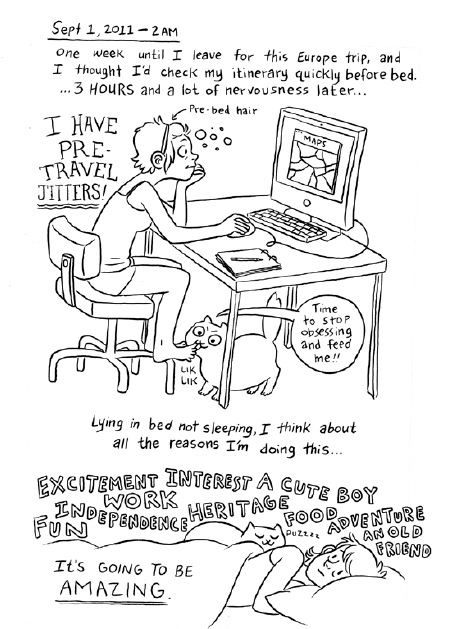 Sept 1, 2011 – 2AM
One week until I leave for this Europe trip, and
I thought I'd check my itinerary quickly before bed.
...3 HOURS and a lot of nervousness later...
Pre-bed hair
I HAVE
PRE-
TRAVEL
JITTERS!
MAPS
Time
to stop
obsessing
and feed
me!!
LIK
LIK
Lying in bed not sleeping, I think about
all the reasons I'm doing this...
EXCITEMENT INTEREST A CUTE BOY
WORK
INDEPENDENCE HERITAGE FOOD ADVENTURE
FUN
AN OLD
FRIEND
puzzzz
IT'S GOING TO BE
AMAZING.